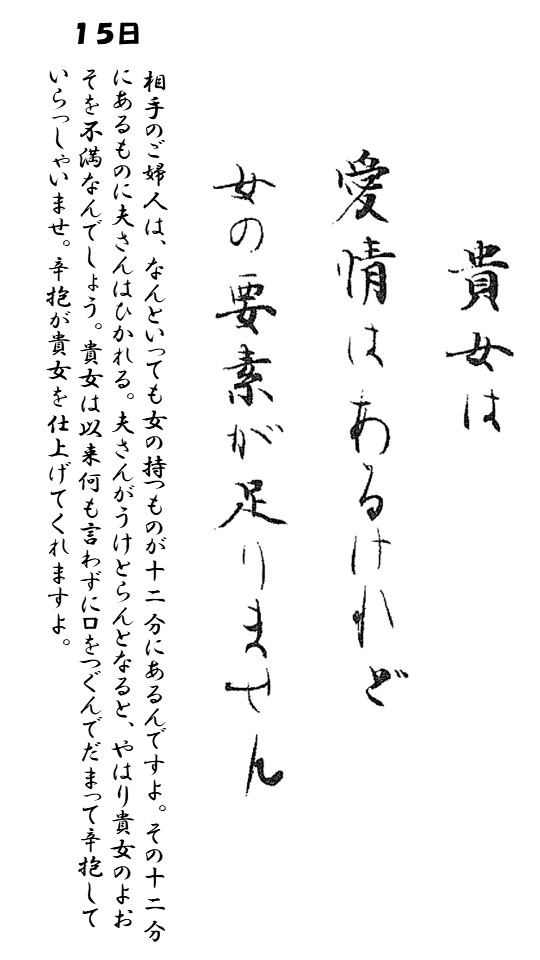 15日
貴女は
愛情はあるけれど
女の要素が足りません
相手のご婦人は、なんといっても女の持つものが十二分にあるんですよ。その十二分
にあるものに夫さんはひかれる。夫さんがうけとらんとなると、やはり貴女のよお
そを不満なんでしょう。貴女は以来何も言わずに口をつぐんでだまって辛抱して
いらっしゃいませ。辛抱が貴女を仕上げてくれますよ。